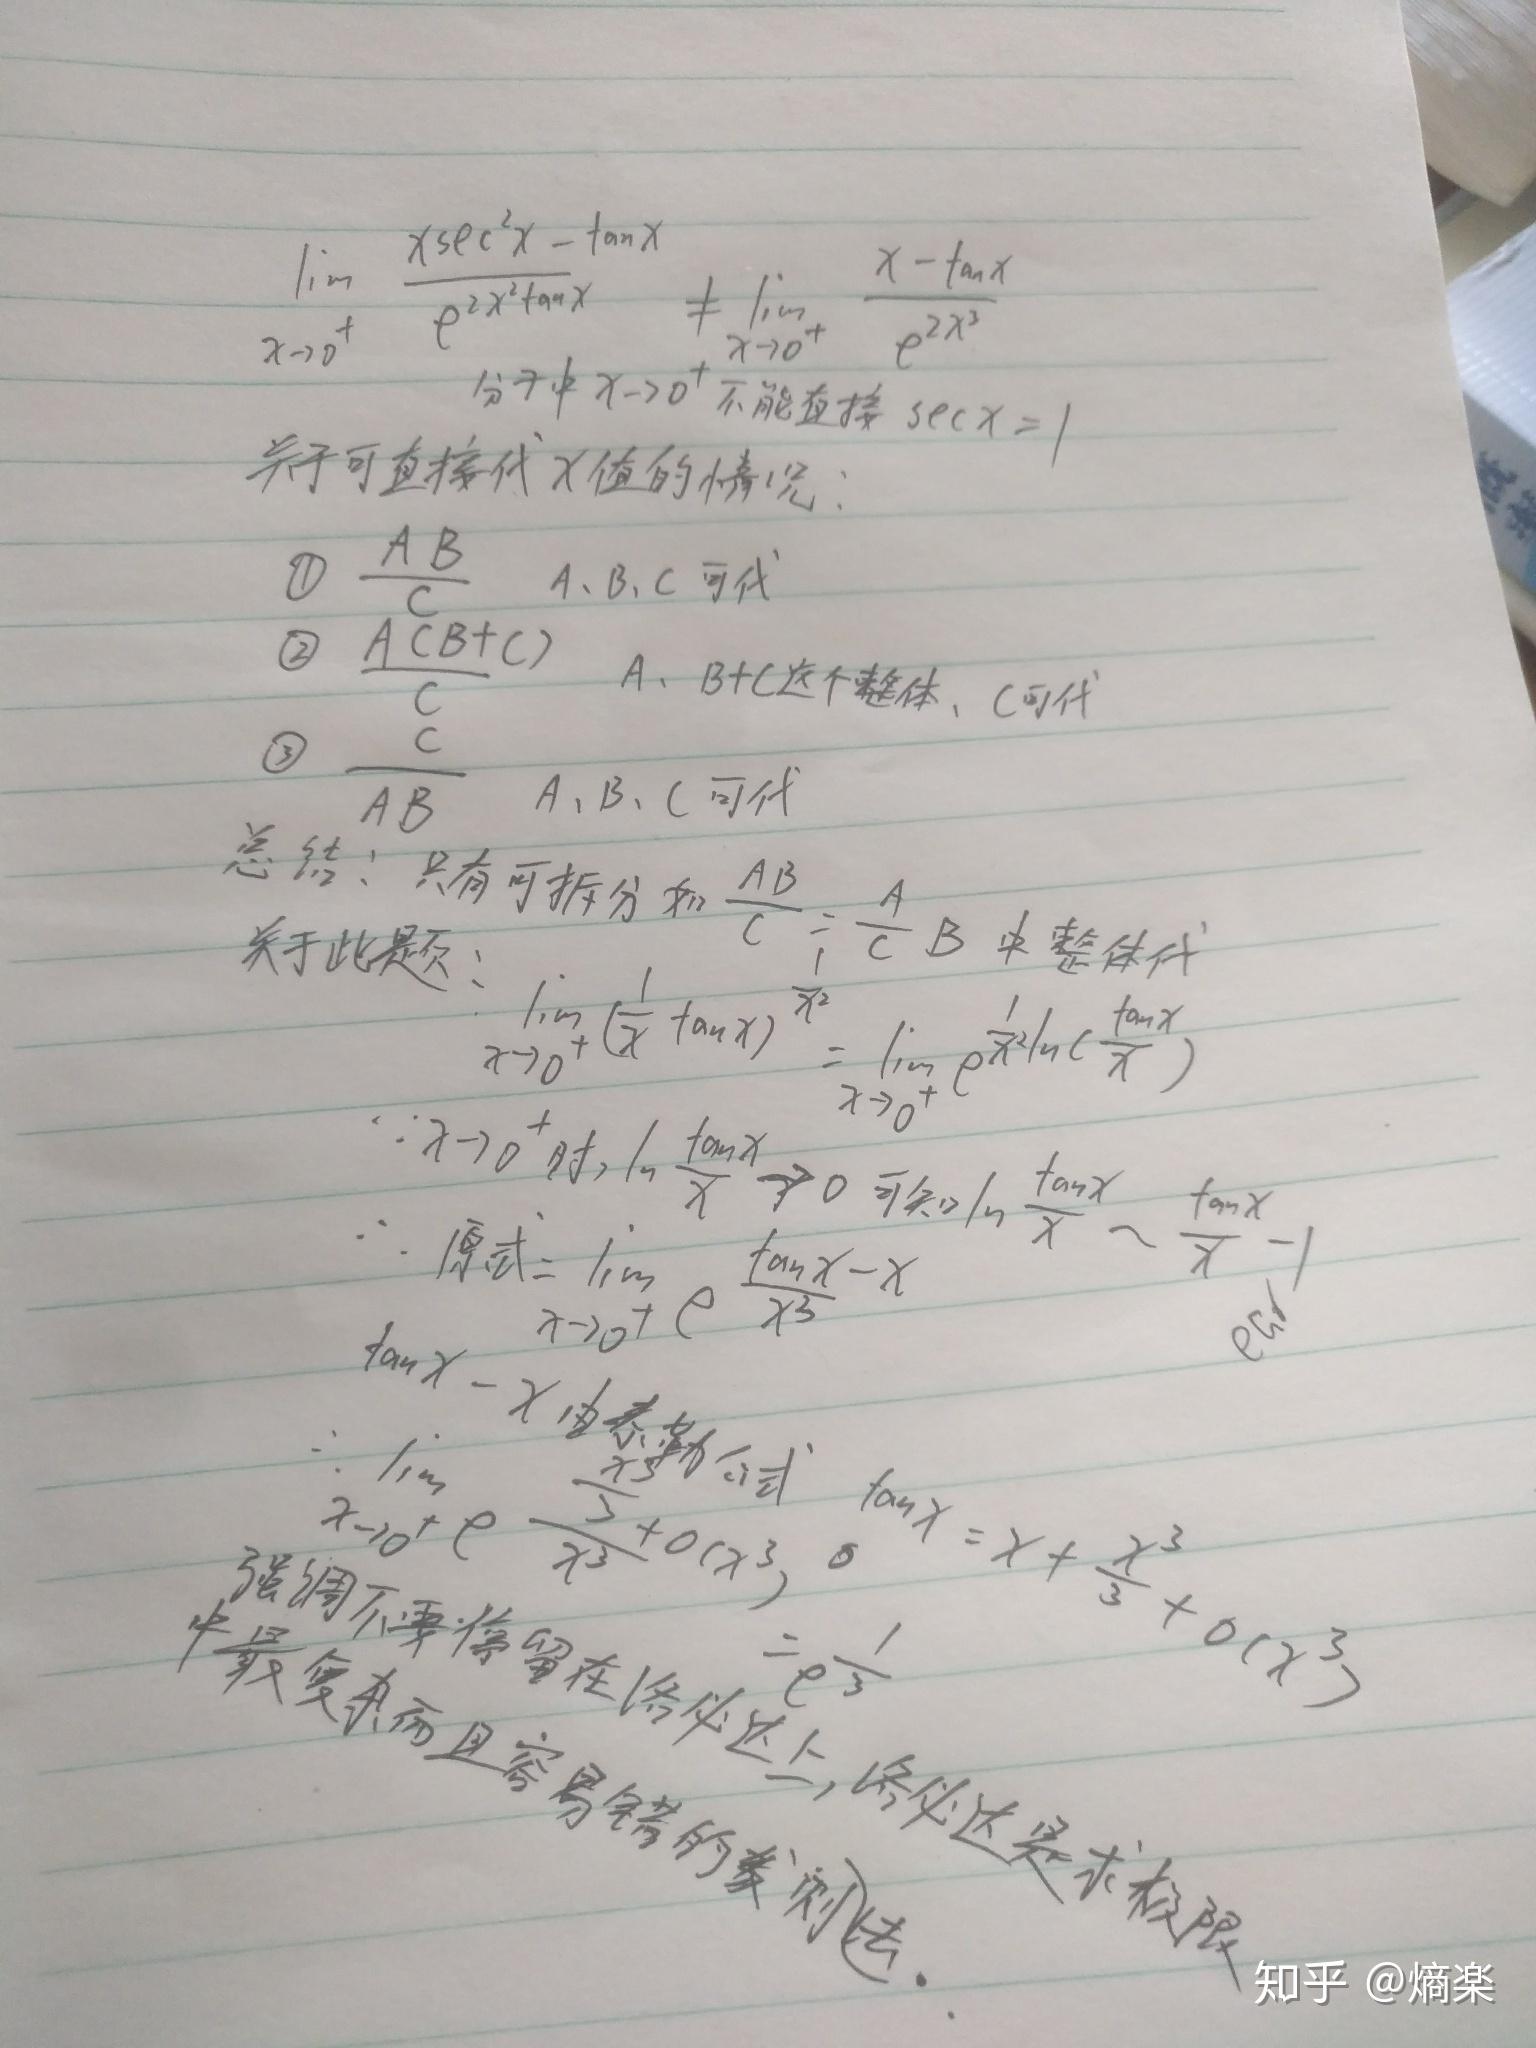 lim x→0⁺ (x sec²x − tanx)/e^(2x²tanx) ≠ lim x→0⁺ (x − tanx)/e^(2x³)
分子中 x→0⁺ 不能直接 secx = 1
关于可直接代 x 值的情况:
① AB/C A、B、C 可代
② A(B+C)/C A、B+C这个整体、C可代
③ C/AB A、B、C可代
总结: 只有可拆分如 AB/C = A/C B 中整体代
关于此题:
lim x→0⁺ (1/x tanx)^(1/x²) = lim x→0⁺ e^(1/x² ln(tanx/x))
∵ x→0⁺时, ln tanx/x → 0 可知 ln tanx/x ~ tanx/x − 1
∴ 原式 = lim x→0⁺ e^((tanx − x)/x³)
tanx − x 由泰勒公式 tanx = x + x³/3 + o(x³)
∴ lim x→0⁺ e^((x³/3)/x³ + o(x³))
= e^(1/3)
强调不要停留在洛必达上, 洛必达是求极限
中最复杂而且容易错的法.
知乎 @熵楽